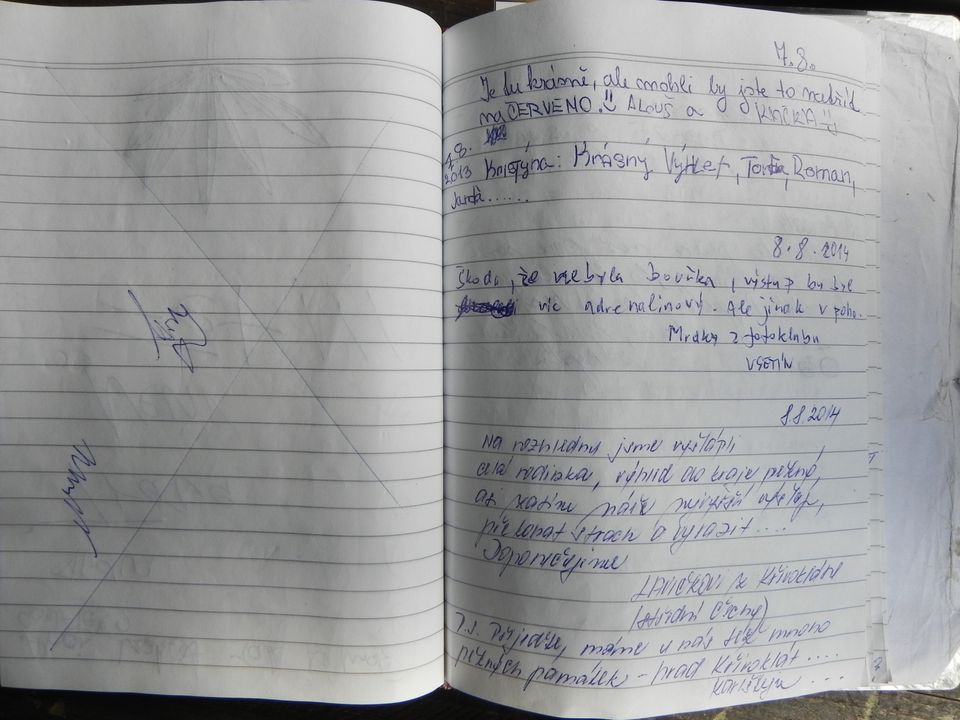 7.8.
Je tu krásně, ale mohli by jste to natřít
na ČERVENO. Alouš a KAČKA
7.8.
2013 Kristýna: Krásný Výhled, Roman,
Janda......
8.8.2014
Škoda, že nebyla bouřka, výstup by byl
víc adrenalinový. Ale jinak v poho.
Mrdky z fotoklubu
VSETÍN
8.8.2014
Na rozhlednu jsme vyšlápli
celá rodinka, výhled do kraje pěkný,
ať zatím náš největší
překonat strach a vyrazit....
Doporučujeme
z Křivoklátu
(střední Čechy)
P.S. Přijeďte, máme u nás též mnoho
pěkných památek - hrad Křivoklát....
Karlštejn ...